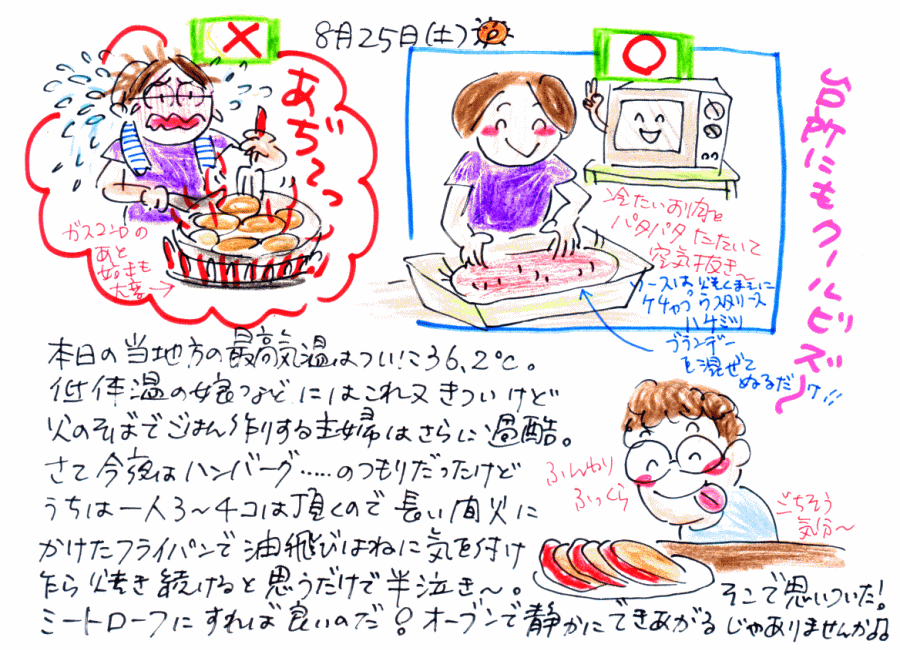 8月25日(土)
あぢ〜っ
ガスコンロの
あと
始末も
大変→
台所にもクールビズ〜
冷たいお肉を
パタパタたたいて
空気抜き〜
ソースは焼くまえに
ケチャップ。ウスターソース
ハチミツ
ブランデー
を混ぜて
ぬるだけ!!
本日の当地方の最高気温はついに36.2℃。
低体温の娘つなどにはこれ又きついけど
火のそばでごはん作りする主婦はさらに過酷。
さて今夜はハンバーグ‥‥‥のつもりだったけど
うちは一人3〜4コは頂くので長い間火に
かけたフライパンで油飛びはねに気を付け
乍ら焼き続けると思うだけで半泣き〜。
そこで思いついた!
ミートローフにすれば良いのだ!オーブンで静かにできあがるじゃありませんか♫
ふんわり
ふっくら
ごちそう
気分〜